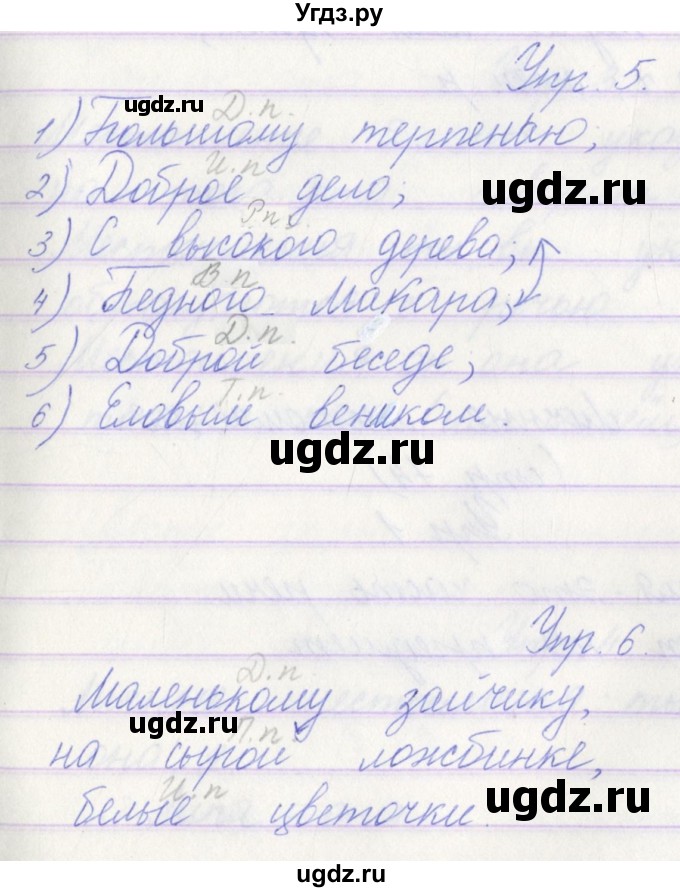 Угдз.ру
Упр. 5.
ugdz.ru Д. п.
1) Большому терпенью,
И. п
2) Доброе дело;
ugdz.ru
Р. п.
3) С высокого дерева;
В. п
4) Бедного Макара;
Д. п.
5) Доброй беседе;
Т. п.
6) Еловым веником.
ugdz.ru
Упр. 6.
Д. п.
Маленькому зайчику,
ugdz.ru П. п.
на сырой ложбинке,
ugdz.ru
И. п
белые цветочки.
ugdz.ru